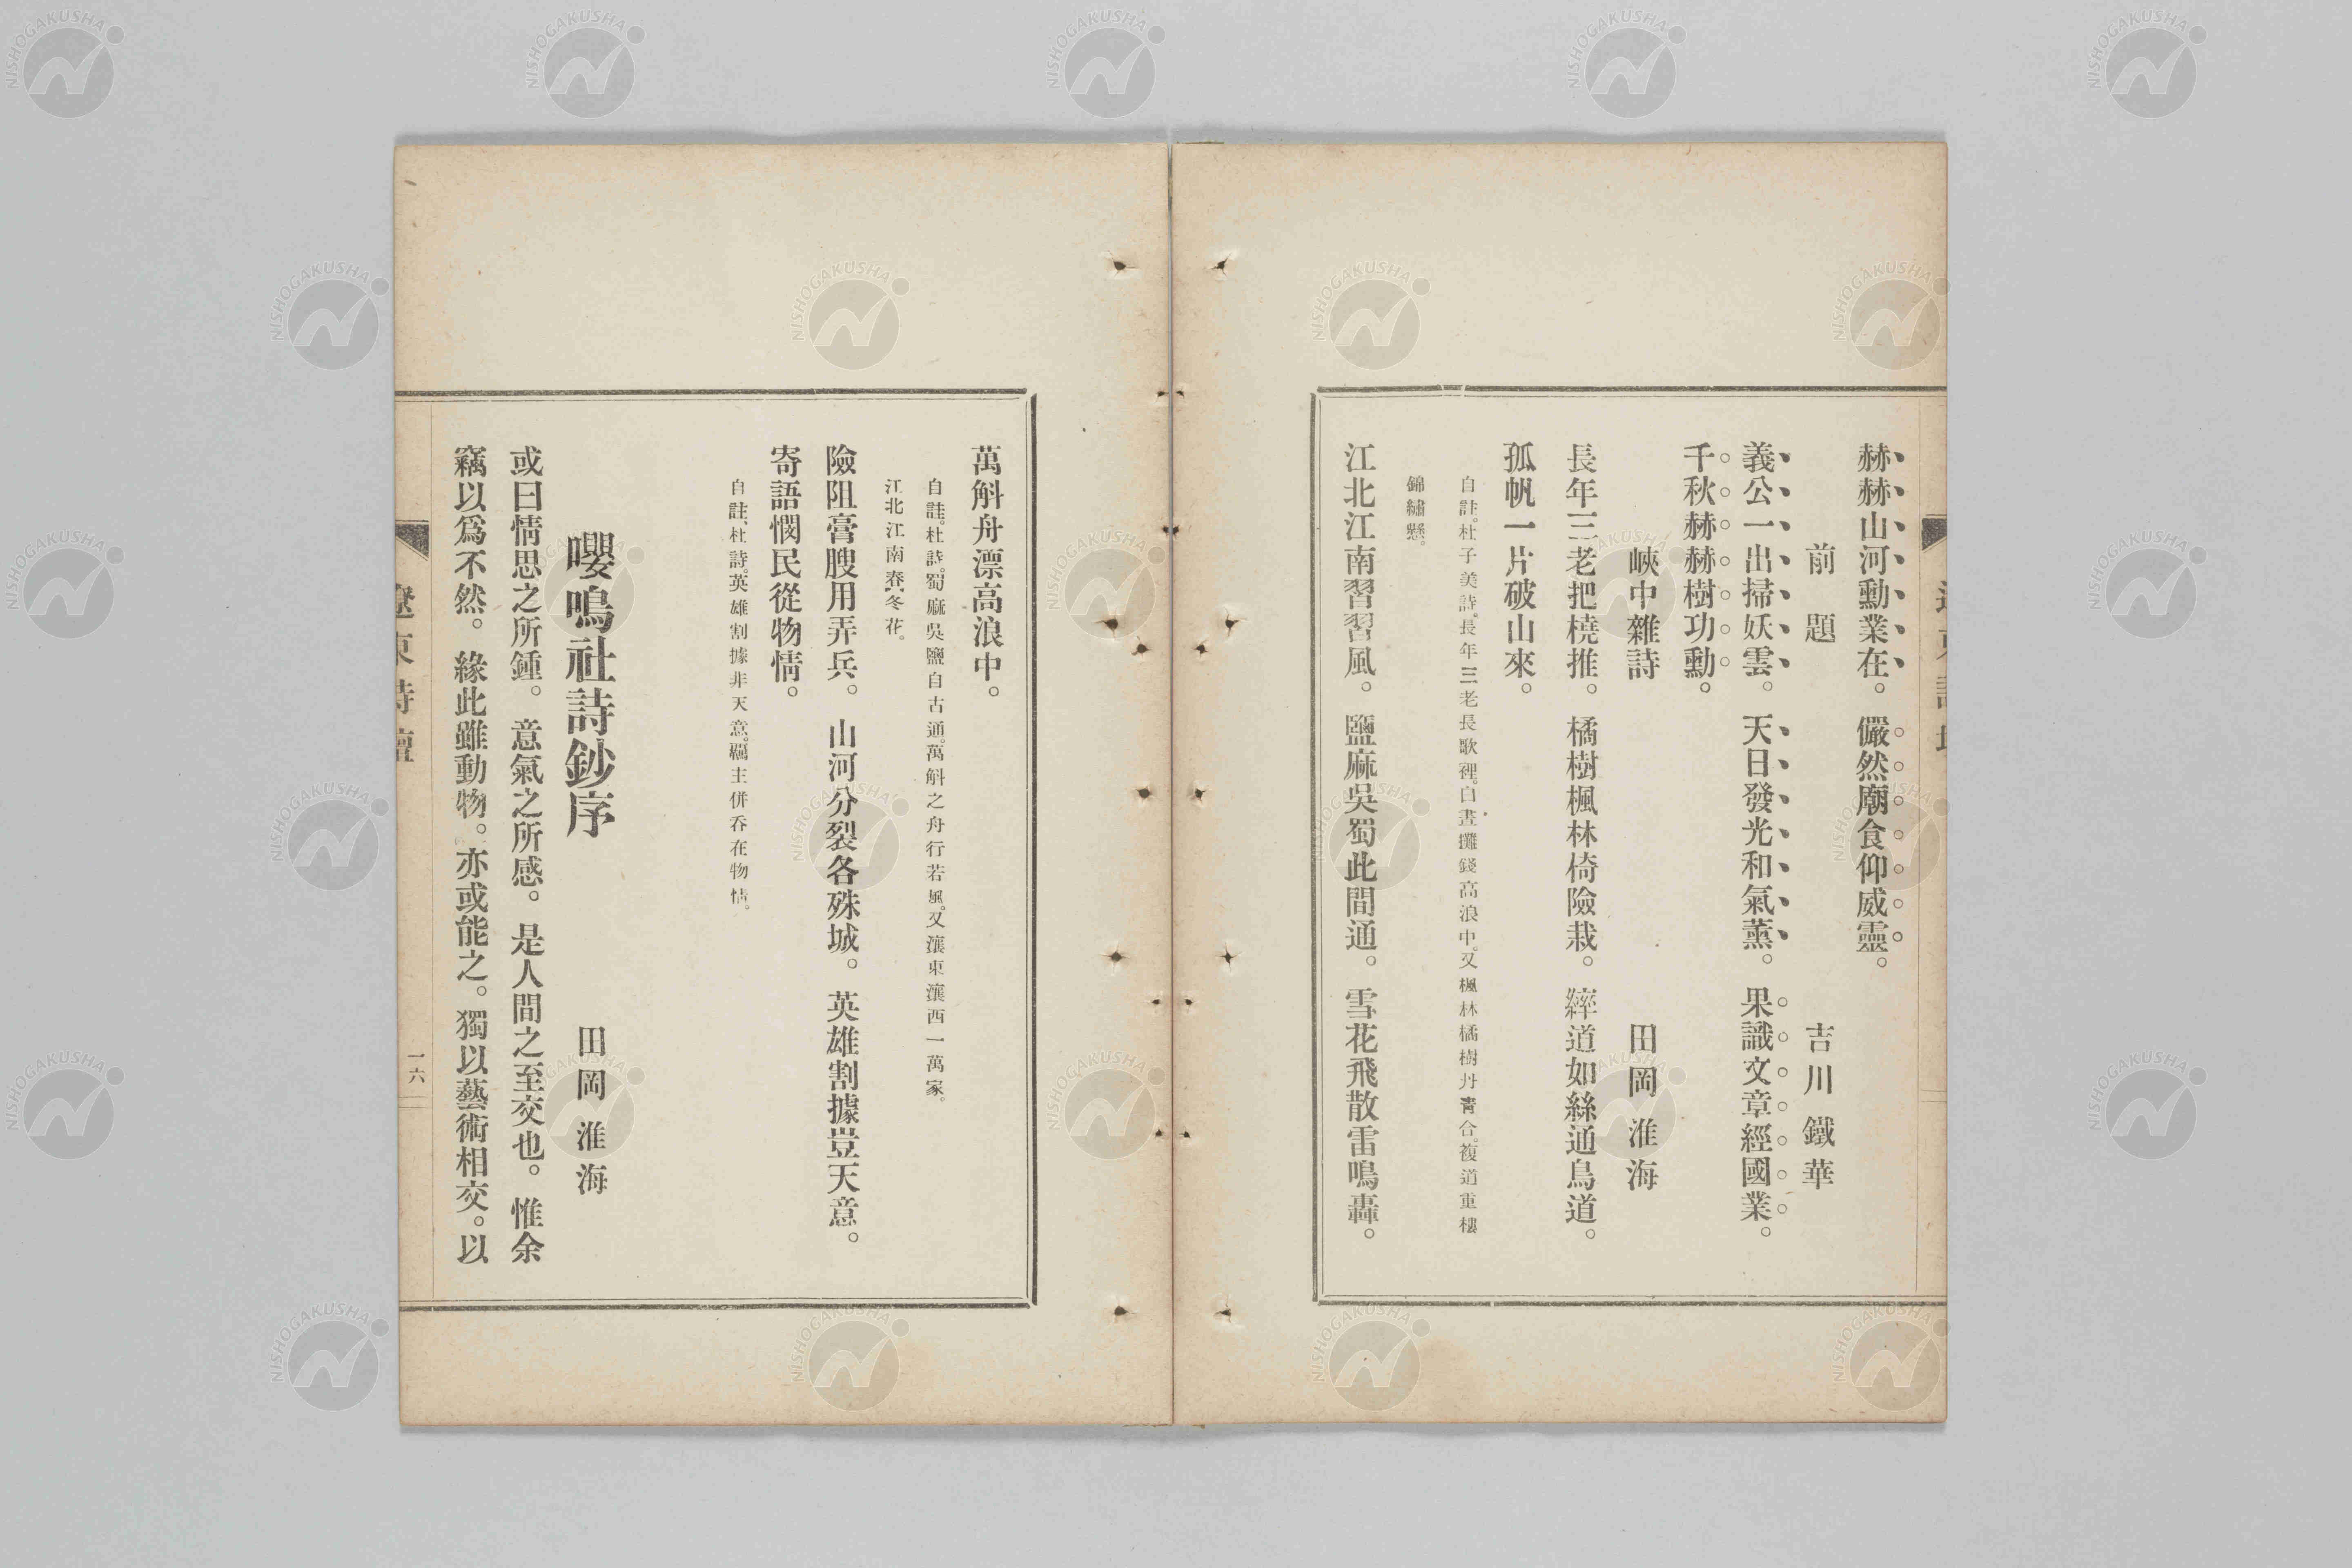 赫赫山河勳業在。儼然廟食仰威靈。
前題 吉川鐵華
義公一出掃妖雲。天日發光和氣薰。果識文章經國業。
千秋赫赫樹功勳。
峽中雜詩 田岡淮海
長年三老把橈推。橘樹楓林倚險栽。縴道如絲通鳥道。
孤帆一片破山來。
自註。杜子美詩。長年三老長歌裡。白晝攤錢高浪中。又楓林橘樹丹青合。複道重樓
錦繡懸。
江北江南習習風。鹽麻吳蜀此間通。雪花飛散雷鳴轟。
萬斛舟漂高浪中。
自註。杜詩。蜀麻吳鹽自古通。萬斛之舟行若風。又瀼東瀼西一萬家。
江北江南春冬花。
險阻膏腴用弄兵。山河分裂各殊城。英雄割據豈天意。
寄語憫民從物情。
自註、杜詩。英雄割據非天意。霸主併吞在物情。
嚶鳴社詩鈔序 田岡淮海
或曰情思之所鍾。意氣之所感。是人間之至交也。惟余
竊以爲不然。緣此雖動物。亦或能之。獨以藝術相交。以
遼東詩壇 一六